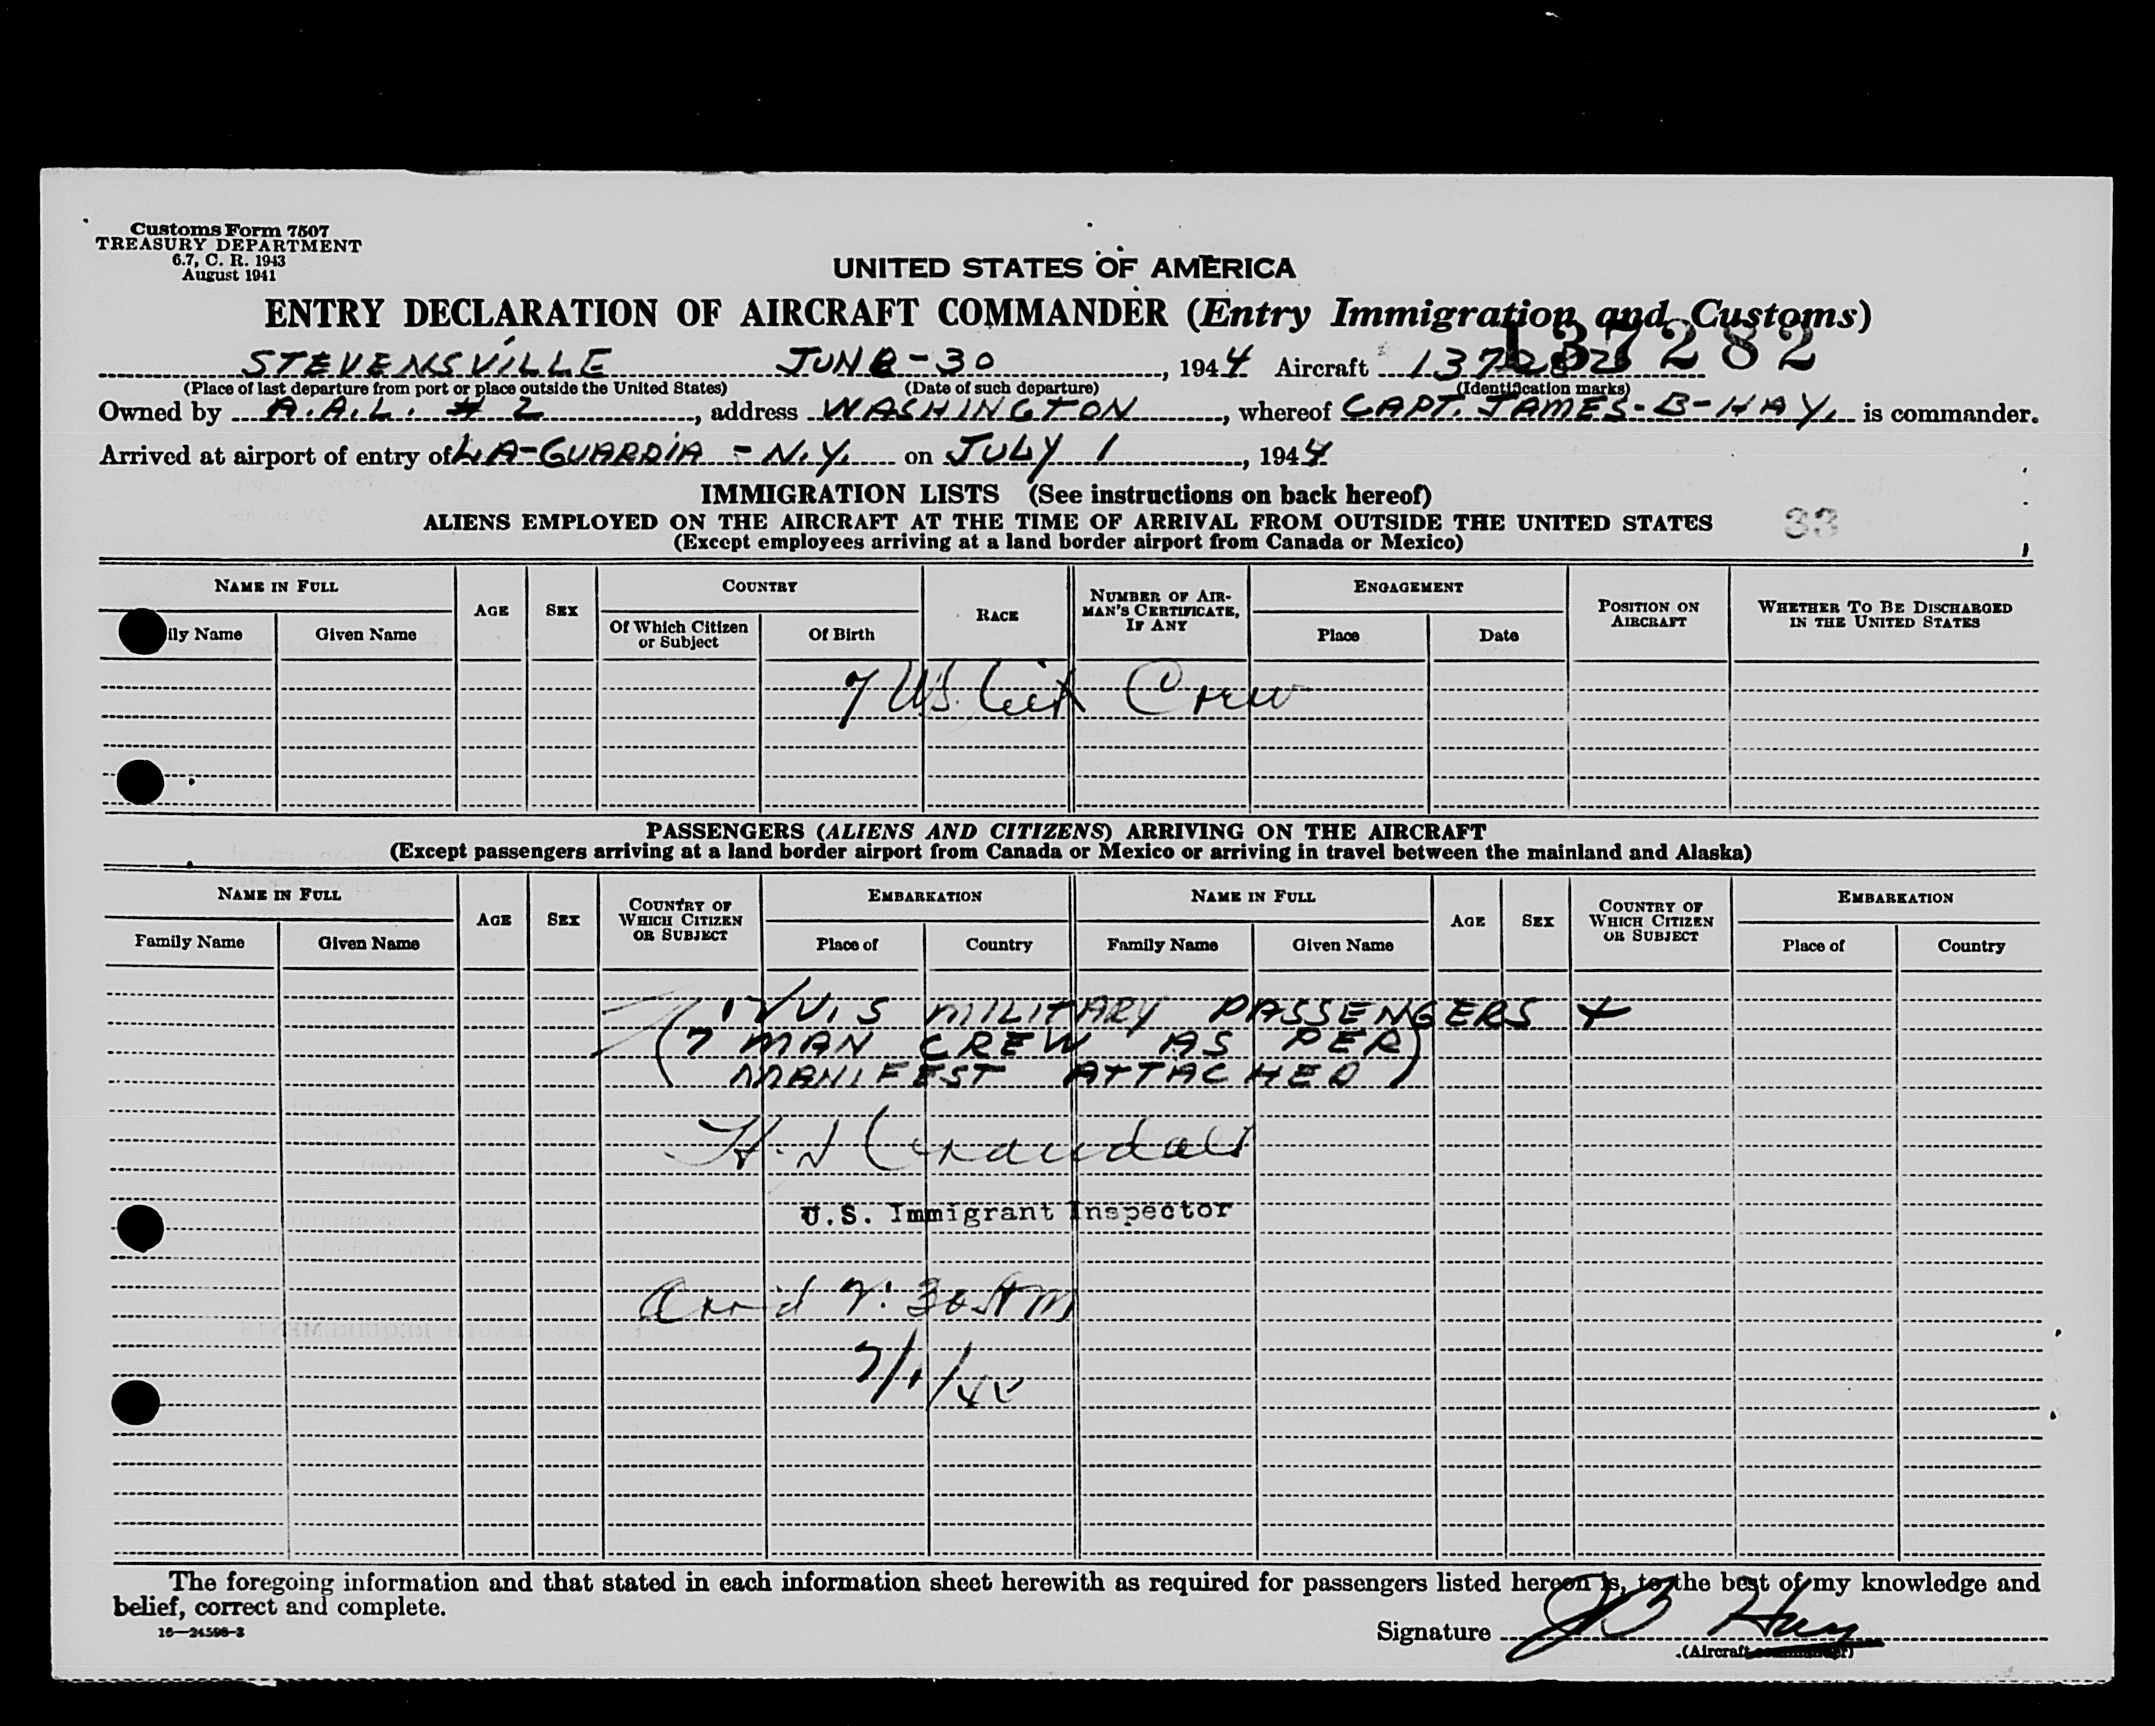 Customs Form 7507
TREASURY DEPARTMENT
6.7, C. R. 1943
August 1941
UNITED STATES OF AMERICA
ENTRY DECLARATION OF AIRCRAFT COMMANDER (Entry Immigration and Customs)
137282
STEVENSVILLE JUNE-30, 1944 Aircraft 137282
(Place of last departure from port or place outside the United States) (Date of such departure) (Identification marks)
Owned by A.A.L. # 2, address WASHINGTON, whereof CAPT. JAMES-B-HAY. is commander.
Arrived at airport of entry of LA-GUARDIA - N.Y. on JULY 1, 1944
IMMIGRATION LISTS (See instructions on back hereof)
ALIENS EMPLOYED ON THE AIRCRAFT AT THE TIME OF ARRIVAL FROM OUTSIDE THE UNITED STATES 33
(Except employees arriving at a land border airport from Canada or Mexico)
NAME IN FULL AGE SEX COUNTRY RACE NUMBER OF AIRMAN'S CERTIFICATE, IF ANY ENGAGEMENT POSITION ON AIRCRAFT WHETHER TO BE DISCHARGED IN THE UNITED STATES
ily Name Given Name Of Which Citizen or Subject Of Birth Place Date
7 US Cit Crew
PASSENGERS (ALIENS AND CITIZENS) ARRIVING ON THE AIRCRAFT
(Except passengers arriving at a land border airport from Canada or Mexico or arriving in travel between the mainland and Alaska)
NAME IN FULL AGE SEX COUNTRY OF WHICH CITIZEN OR SUBJECT EMBARKATION NAME IN FULL AGE SEX COUNTRY OF WHICH CITIZEN OR SUBJECT EMBARKATION
Family Name Given Name Place of Country Family Name Given Name Place of Country
U.S MILITARY PASSENGERS +
(7 MAN CREW AS PER
MANIFEST ATTACHED)
H. J Crandall
U.S. Immigrant Inspector
Arr'd 7:30 AM
7/1/44
The foregoing information and that stated in each information sheet herewith as required for passengers listed hereon is, to the best of my knowledge and
belief, correct and complete.
16—24598-3
Signature JB Hay
(Aircraft commander)